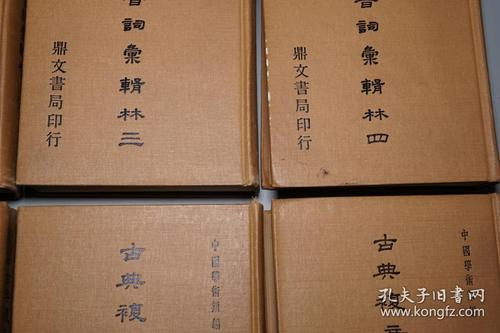 音詞彙輯林三
鼎文書局印行
音詞彙輯林四
鼎文書局印行
中國學術類編
古典複
中國學術
古典複
孔夫子旧书网
www.kongfz.com